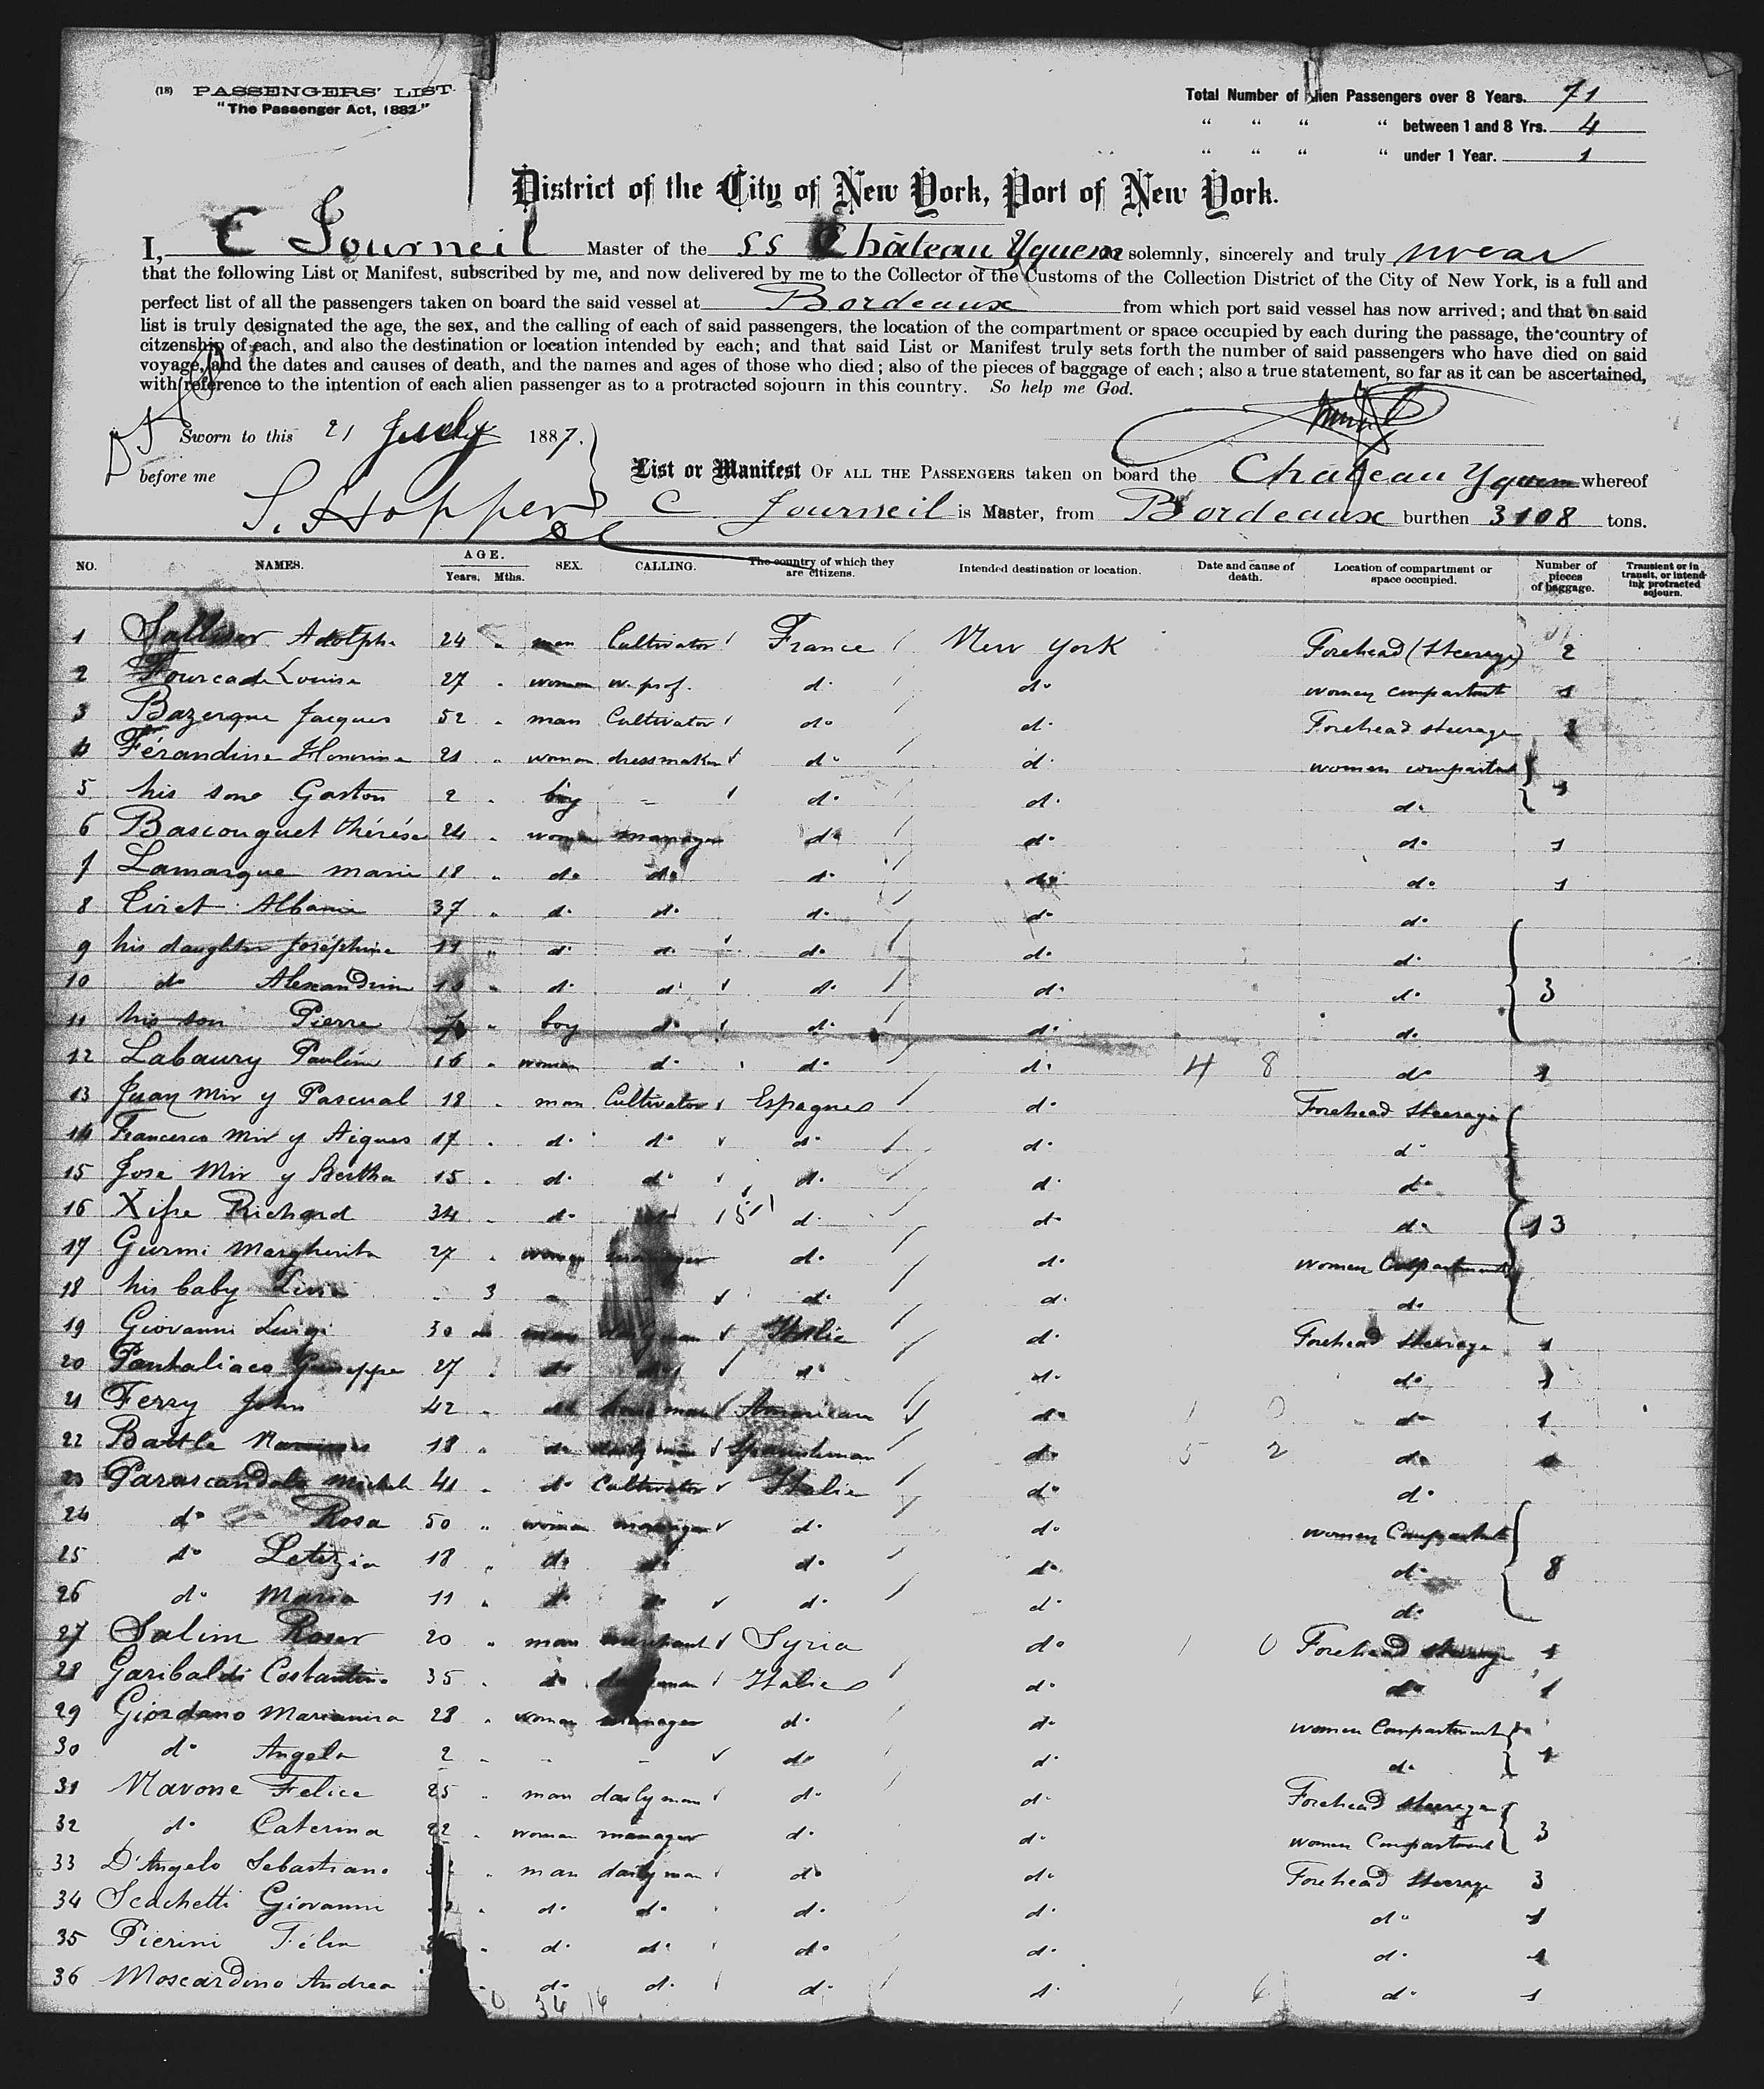 (18) PASSENGERS' LIST.
"The Passenger Act, 1882."
Total Number of Alien Passengers over 8 Years. 71
" " " " between 1 and 8 Yrs. 4
" " " " under 1 Year. 1
District of the City of New York, Port of New York.
I, C Journeil Master of the SS Château Yquem solemnly, sincerely and truly swear
that the following List or Manifest, subscribed by me, and now delivered by me to the Collector of the Customs of the Collection District of the City of New York, is a full and
perfect list of all the passengers taken on board the said vessel at Bordeaux from which port said vessel has now arrived; and that on said
list is truly designated the age, the sex, and the calling of each of said passengers, the location of the compartment or space occupied by each during the passage, the country of
citzenship of each, and also the destination or location intended by each; and that said List or Manifest truly sets forth the number of said passengers who have died on said
voyage, and the dates and causes of death, and the names and ages of those who died; also of the pieces of baggage of each; also a true statement, so far as it can be ascertained,
with reference to the intention of each alien passenger as to a protracted sojourn in this country. So help me God.
Sworn to this 21 July 1887.
before me S. Hopper
List or Manifest OF ALL THE PASSENGERS taken on board the Chateau Yquem whereof
C Journeil is Master, from Bordeaux burthen 3108 tons.
NO. NAMES. AGE. Years. Mths. SEX. CALLING. The country of which they are citizens. Intended destination or location. Date and cause of death. Location of compartment or space occupied. Number of pieces of baggage. Transient or in transit, or intending protracted sojourn.
1 Adolph 24 " man Cultivator France New York Forehead (Steerage) 2
2 Fourcade Louise 27 " woman w. prof. do do women compartment 1
3 Bazerque Jacques 52 " man Cultivator do do Forehead steerage
4 Férandine Honorine 21 " woman dressmaker do do women compartment
5 his sone Gaston 2 " boy - do do do
6 Bascouguet Thérése 24 " woman manager do do do 1
7 Lamarque Marie 18 " do do do do do 1
8 Ciret Albanie 37 " do do do do do
9 his daughter Joséphine 11 " do do do do do
10 do Alexandrine " do do do do do 3
11 his son Pierre " boy do do do do
12 Labaury Pauline 16 " woman do do do 4 8 do 1
13 Juan Mir y Pascual 18 " man Cultivator Espagnes do Forehead Steerage
14 Francesco Mir y Aigues 17 " do do do do do
15 Jose Mir y Bertha 15 " do do do do do
16 Xifre Richard 34 " do do do do do 13
17 Gurmi Margherita 27 " woman manager do do women Compartment
18 his baby " 3 - do do do
19 Giovanni Luigi 30 " man Italie do Forehead Steerage 1
20 Pantaliaco Giuseppe 27 " do do do do do 1
21 Ferry John 42 " do American do 1 0 do 1
22 Battle 18 " do daily man Spanishman do 5 2 do
23 Parascandolo Michele 41 " do Cultivator Italie do do
24 do Rosa 50 " woman manager do do women Compartment
25 do Letizia 18 " do do do do do 8
26 do Maria 11 " do do do do do
27 Salim 20 " man merchant Syria do 1 0 Forehead steerage 1
28 Garibaldi Costantino 35 " do Italie do do 1
29 Giordano Marianina 28 " woman manager do do women Compartment
30 do Angela 2 " - - do do do 1
31 Navone Felice 25 " man dailyman do do Forehead steerage
32 do Caterina 22 " woman manager do do women Compartment 3
33 D'Angelo Sebastiano " man dailyman do do Forehead Steerage 3
34 Scachetti Giovanni " do do do do do 1
35 Pierini " do do do do do 1
36 Moscardino Andrea " do do do do 6 do 1
34 16